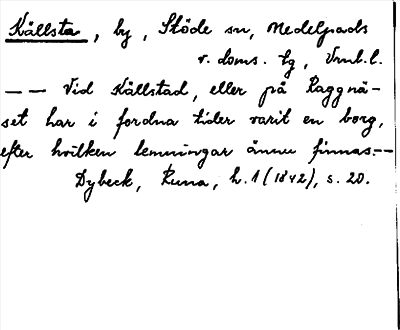 Källsta, by, Stöde sn, Medelpads
v. doms. tg, Vnrl. l.
— — Vid Källstad, eller på Raggnä-
set har i fordna tider varit en borg,
efter hvilken lemningar ännu finnas.—
Dybeck, Runa, h. 1 (1842), s. 20.